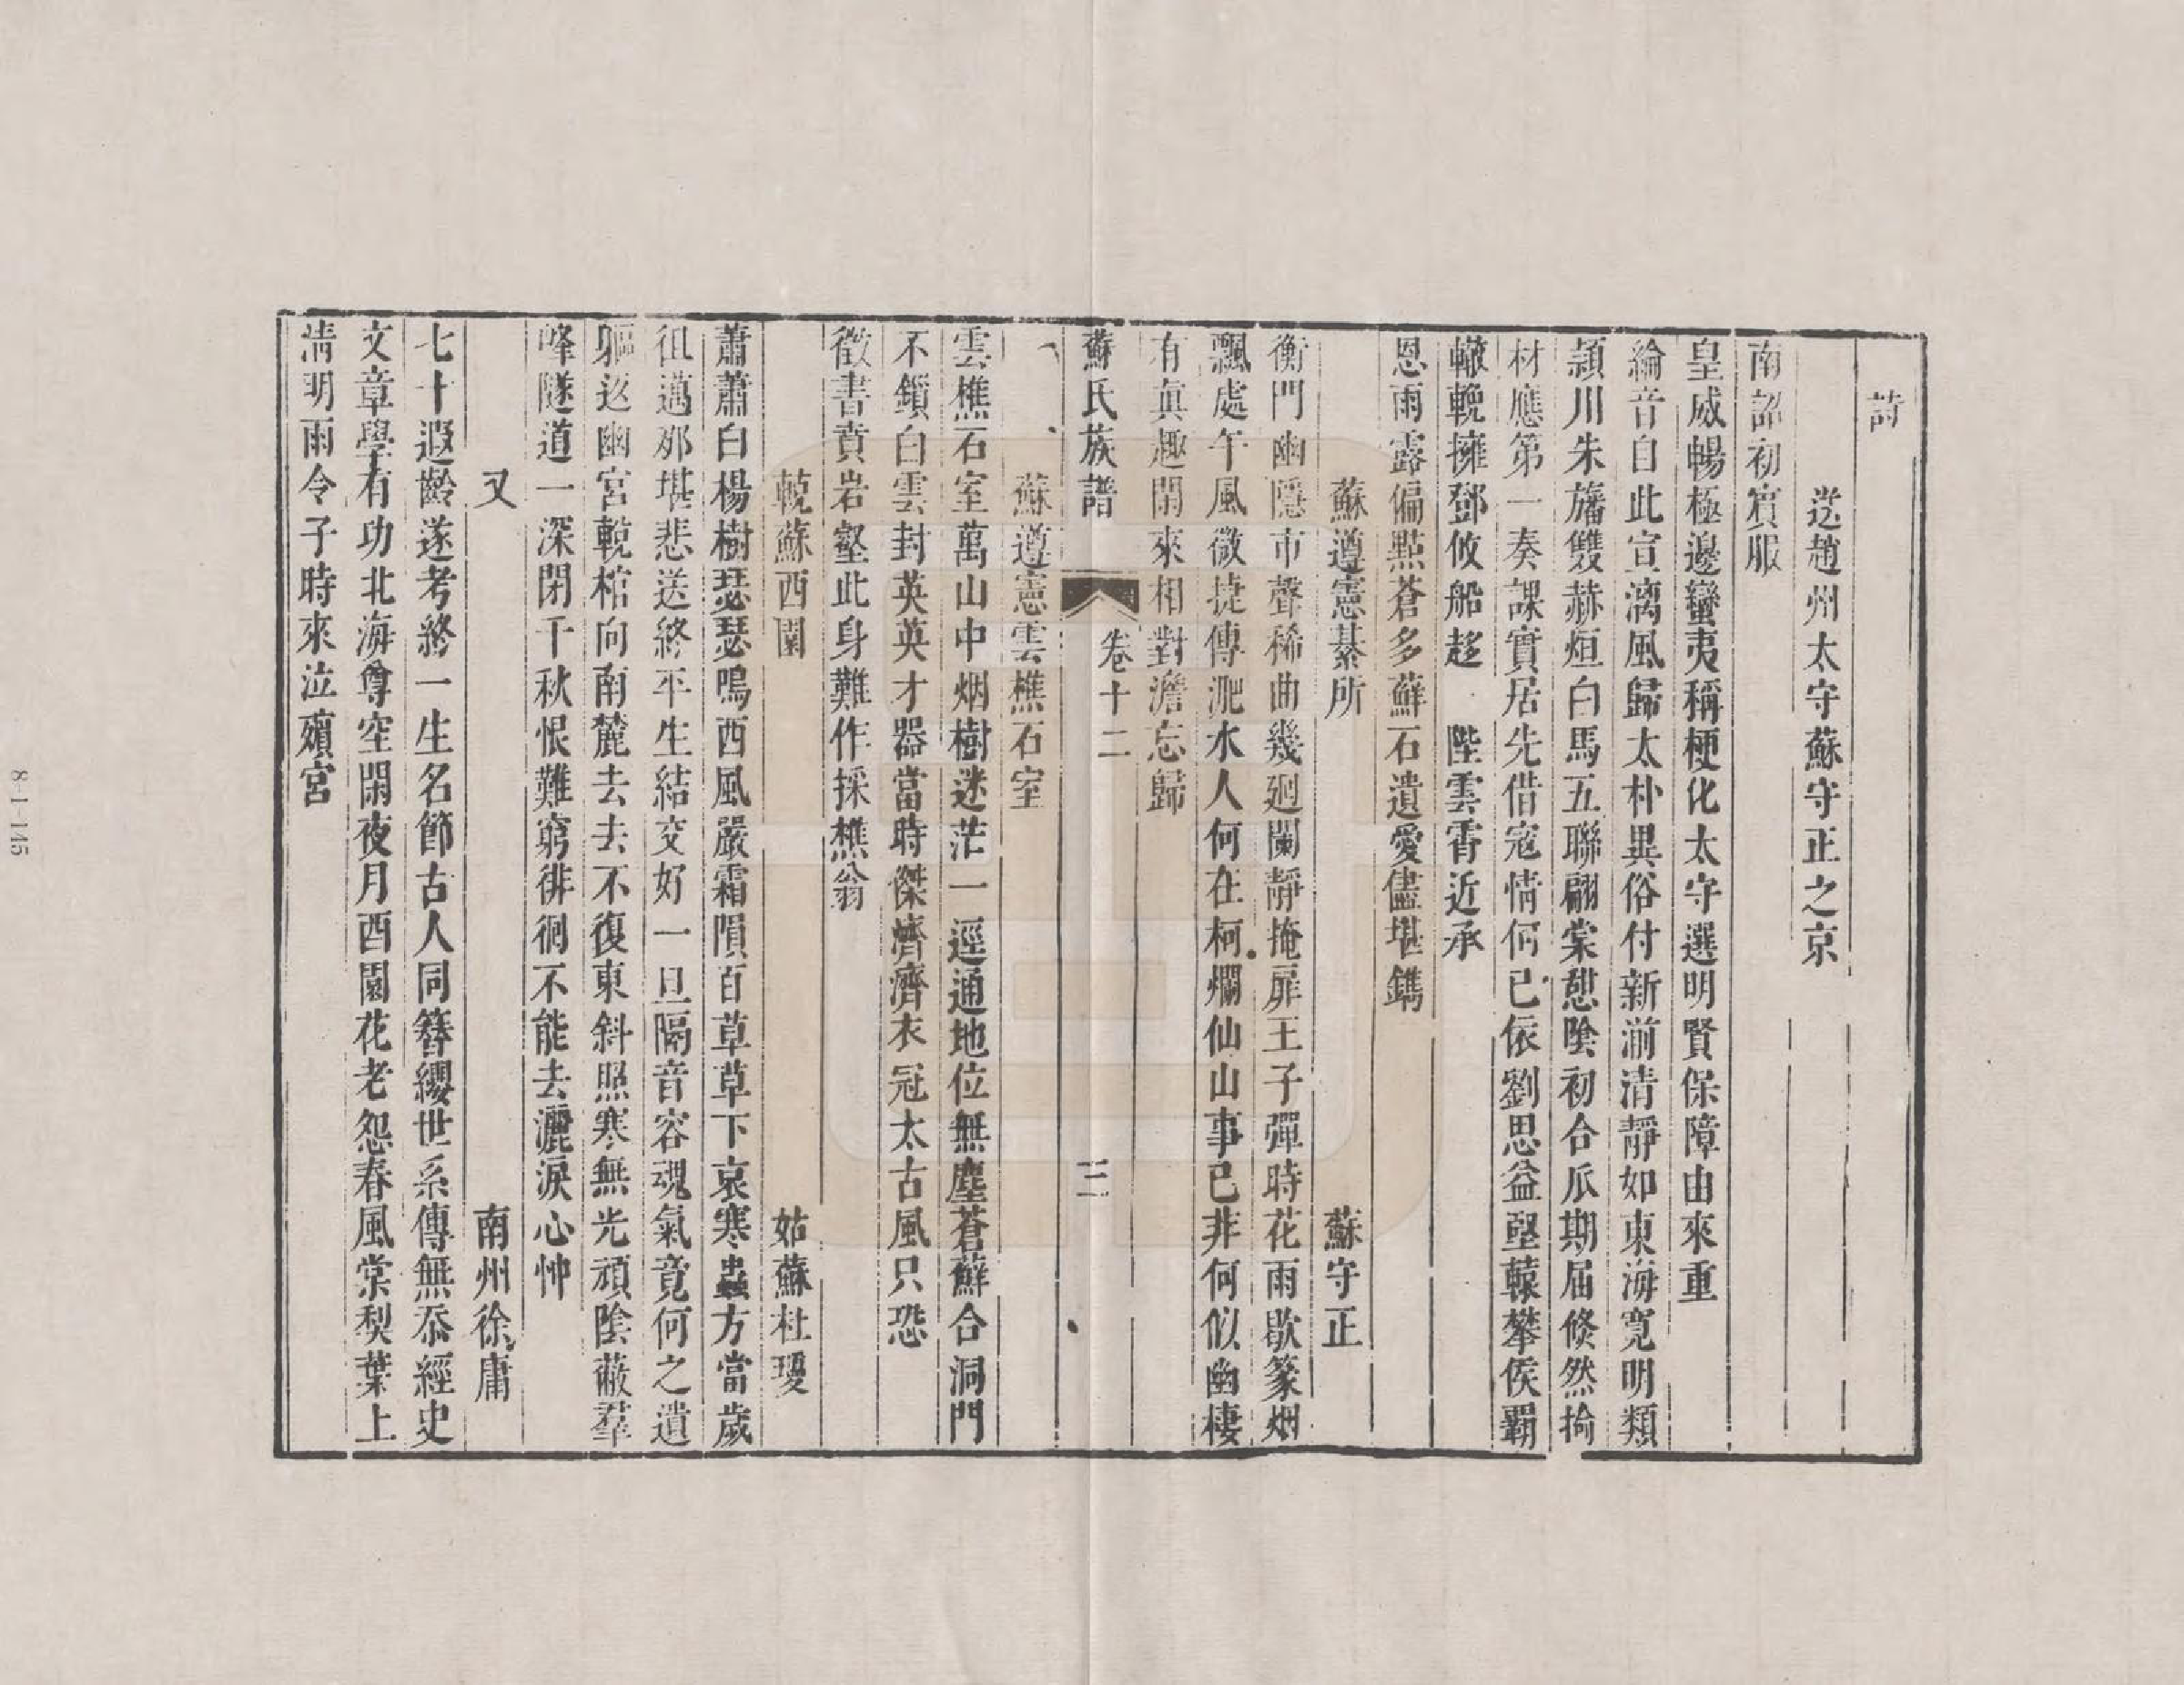 詩
送趙州太守蘇守正之京
南詔初賓服
皇威暢極邊蠻夷稱梗化太守選明賢保障由來重
綸音自此宣漓風歸太朴異俗付新湔清靜如東海寬明類
潁川朱旛雙赫烜白馬五聯翩棠憩陰初合瓜期届倐然掄
材應第一奏課實居先借寇情何已依劉思益堅轅攀侯霸
轍輓擁鄧攸船趍 陛雲霄近承
恩雨露偏點蒼多蘚石遺愛儘堪鐫
蘇遵憲棊所 蘇守正
衡門幽隱市聲稀曲幾廻闌靜掩扉王子彈時花雨歇篆烟
飄處午風微捷傳淝水人何在柯爛仙山事已非何似幽棲
有眞趣閑來相對澹忘歸
蘇氏族譜 卷十二 三
蘇遵憲雲樵石室
雲樵石室萬山中烟樹迷茫一逕通地位無塵蒼蘚合洞門
不鎖白雲封英英才器當時傑濟濟衣冠太古風只恐
徵書賁岩壑此身難作採樵翁
輓蘇西園 姑蘇杜瓊
蕭蕭白楊樹瑟瑟鳴西風嚴霜隕百草草下哀寒蟲方當歲
徂邁那堪悲送終平生結交好一旦隔音容魂氣竟何之遺
軀返幽宮輓棺向南麓去去不復東斜照寒無光頑陰蔽羣
峰隧道一深閉千秋恨難窮徘徊不能去灑淚心忡
又 南州徐庸
七十遐齡遂考終一生名節古人同簪纓世系傳無忝經史
文章學有功北海尊空閑夜月西園花老怨春風棠梨葉上
淸明雨令子時來泣殯宮
8-1-145